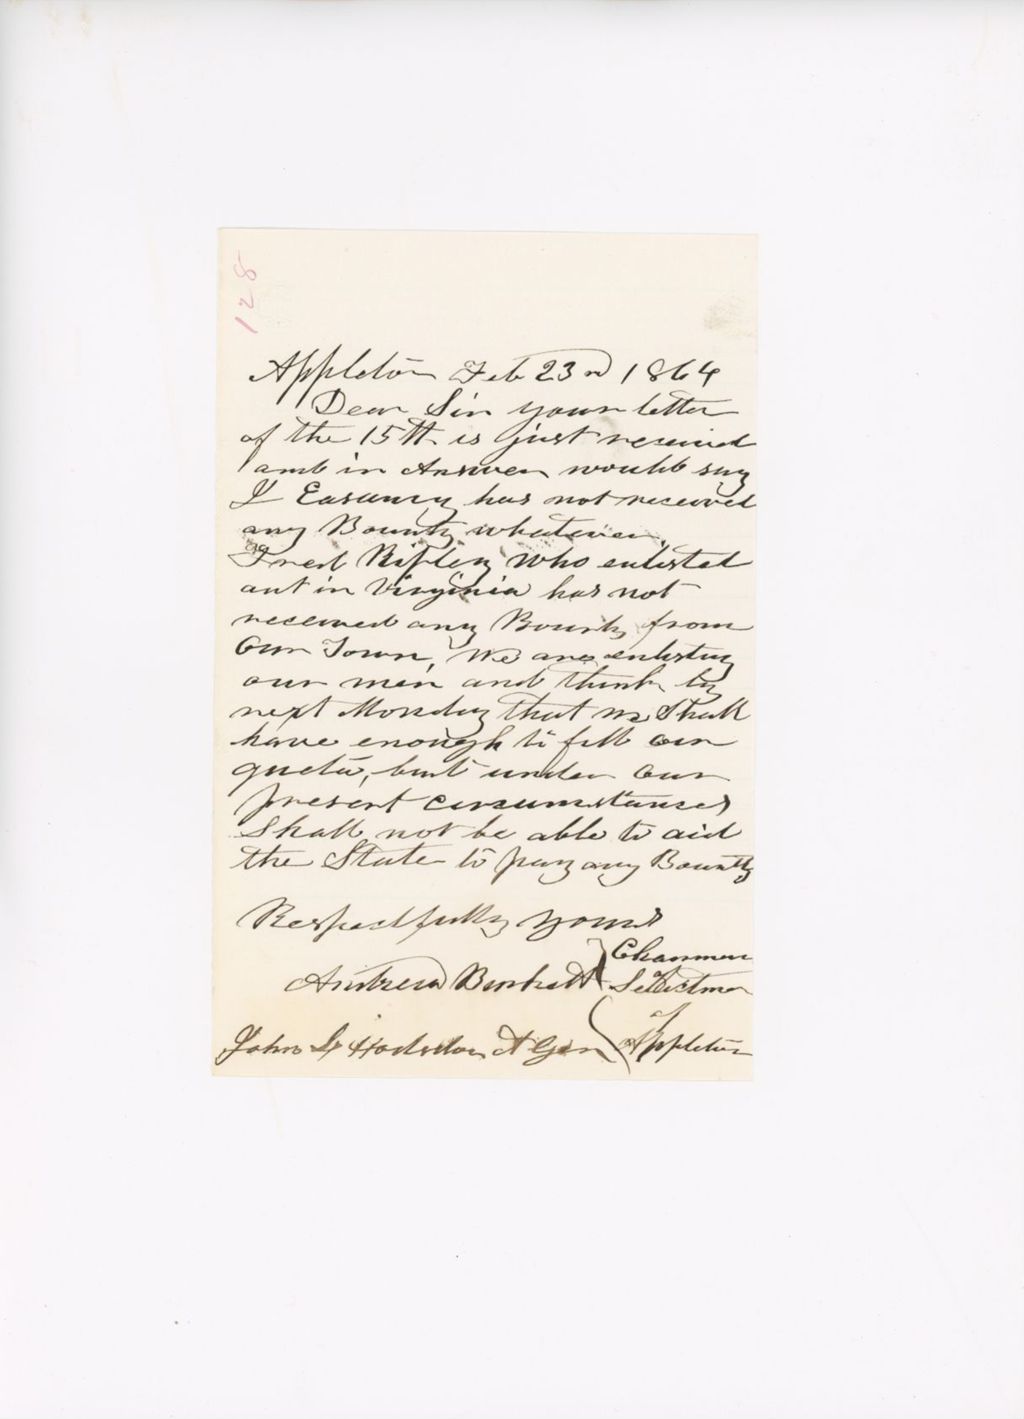 128
Appleton Feb 23rd 1864
Dear Sir your letter
of the 15th is just received
and in Answer would say
has not received
any Bounty whatever.
Fred Ripley Who enlisted
out in Virginia has not
received any Bounty from
Our Town, We are enlisting
our men and think by
next Monday that we Shall
have enough to fill our
quota, but under Our
present circumstances
Shall not be able to aid
the State to pay any Bounty
Respectfully yours
Andrew Burkett } Chairman
of Selectmen
of
John L Hodsdon A Gen Appleton